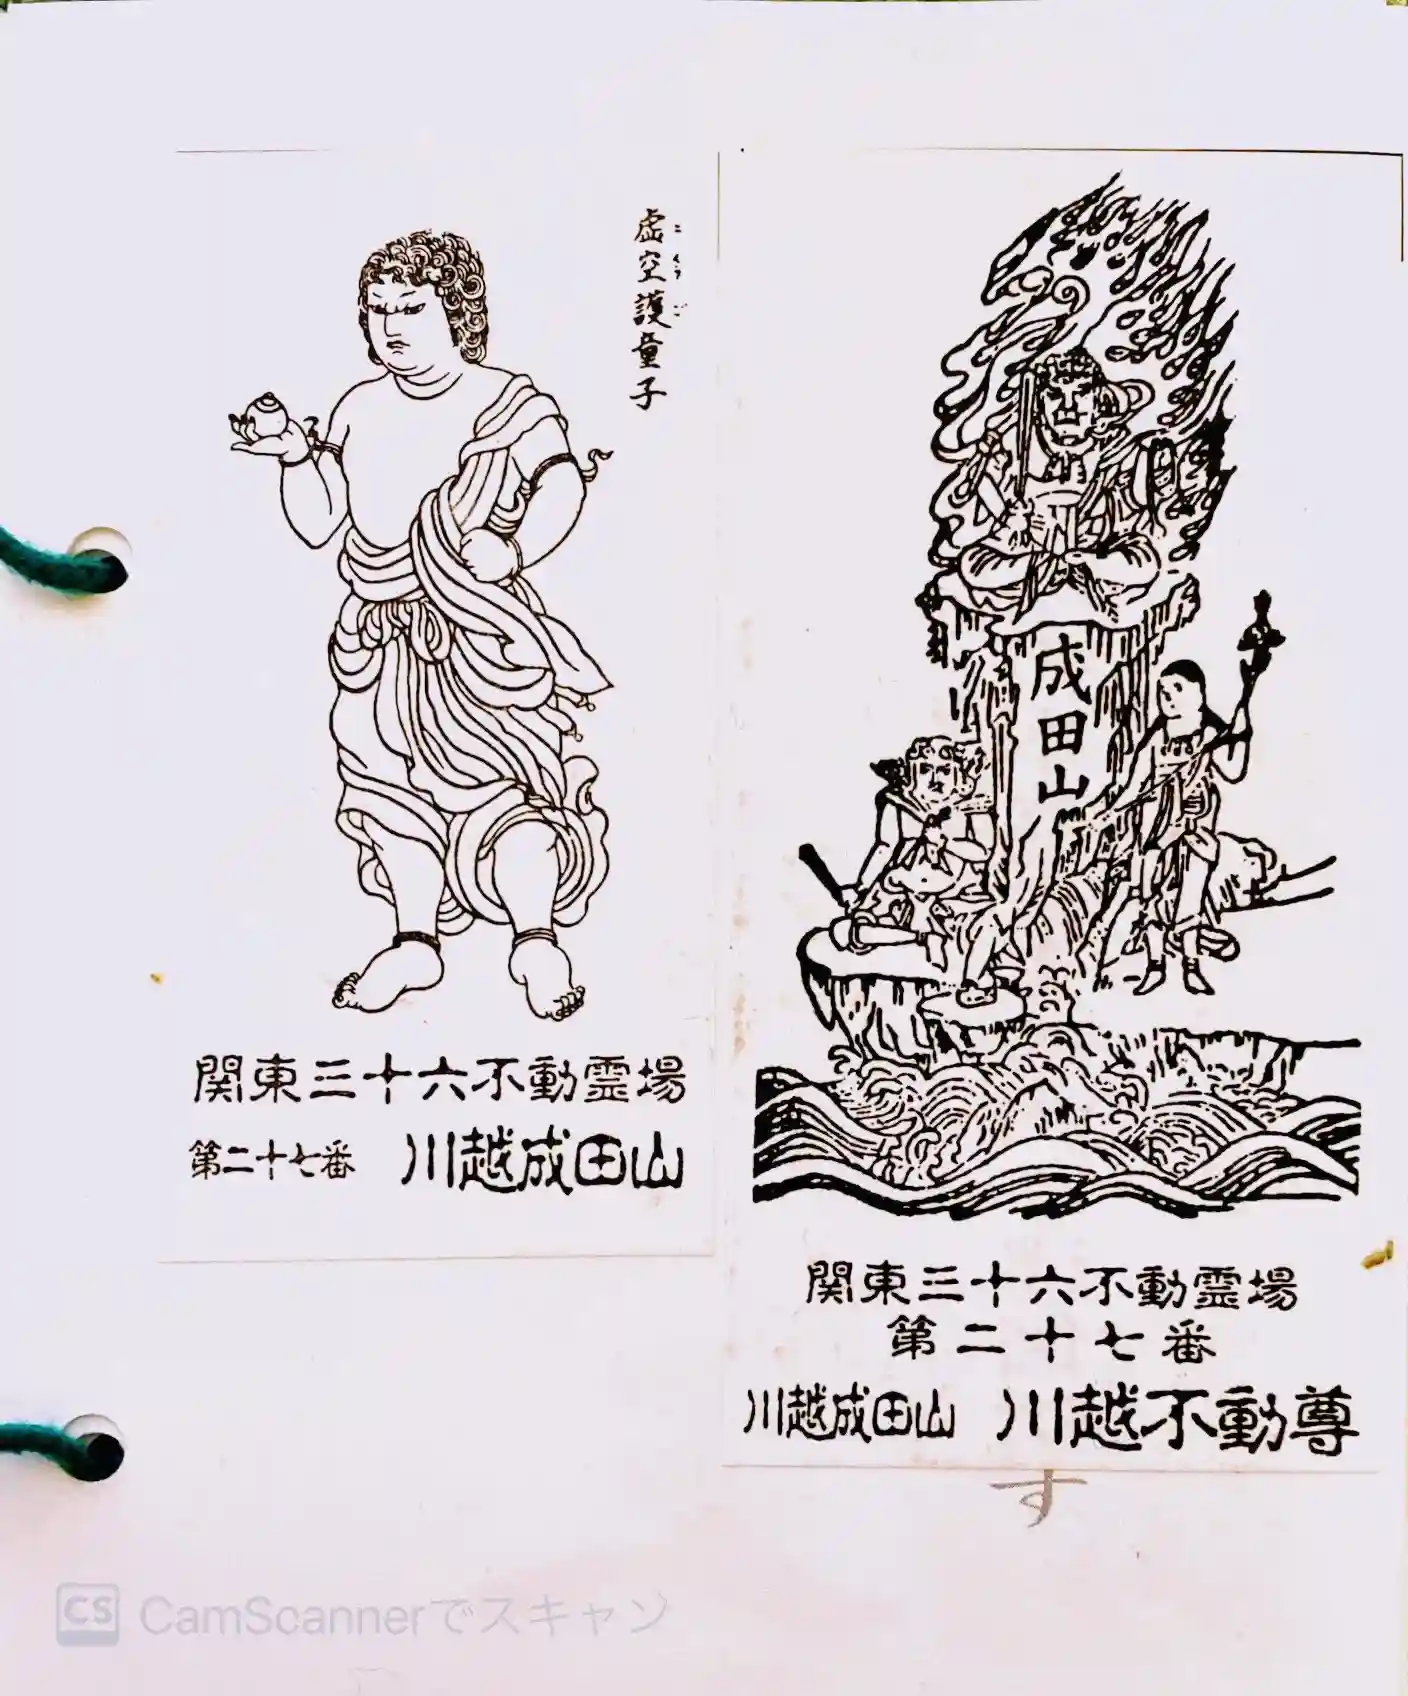 虚空護童子
こくうご
関東三十六不動霊場
第二十七番 川越成田山
成田山
関東三十六不動霊場
第二十七番
川越成田山 川越不動尊
す
CS CamScannerでスキャン